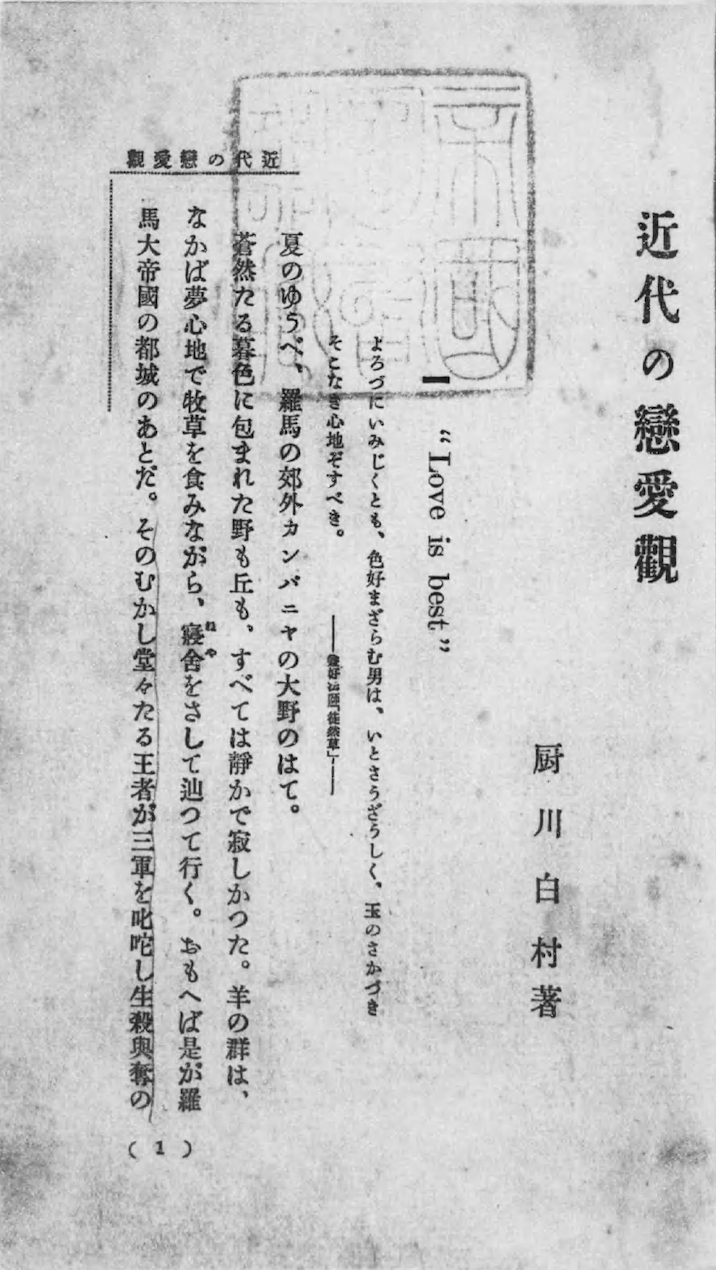 近代の戀愛觀
厨川白村著
一
“Love is best”
よろづにいみじくとも、色好まざらむ男は、いとさうざうしく、玉のさかづき
そこなき心地ぞすべき。
――兼好法師「徒然草」――
夏のゆうべ、羅馬の郊外カンパニヤの大野のはて。
蒼然たる暮色に包まれた野も丘も、すべては靜かで寂しかつた。羊の群は、
なかば夢心地で牧草を食みながら、寢舍をさして辿つて行く。おもへば是が羅
ねや
馬大帝國の都城のあとだ。そのむかし堂々たる王者が三軍を叱咤し生殺與奪の
近代の戀愛觀
( 1 )